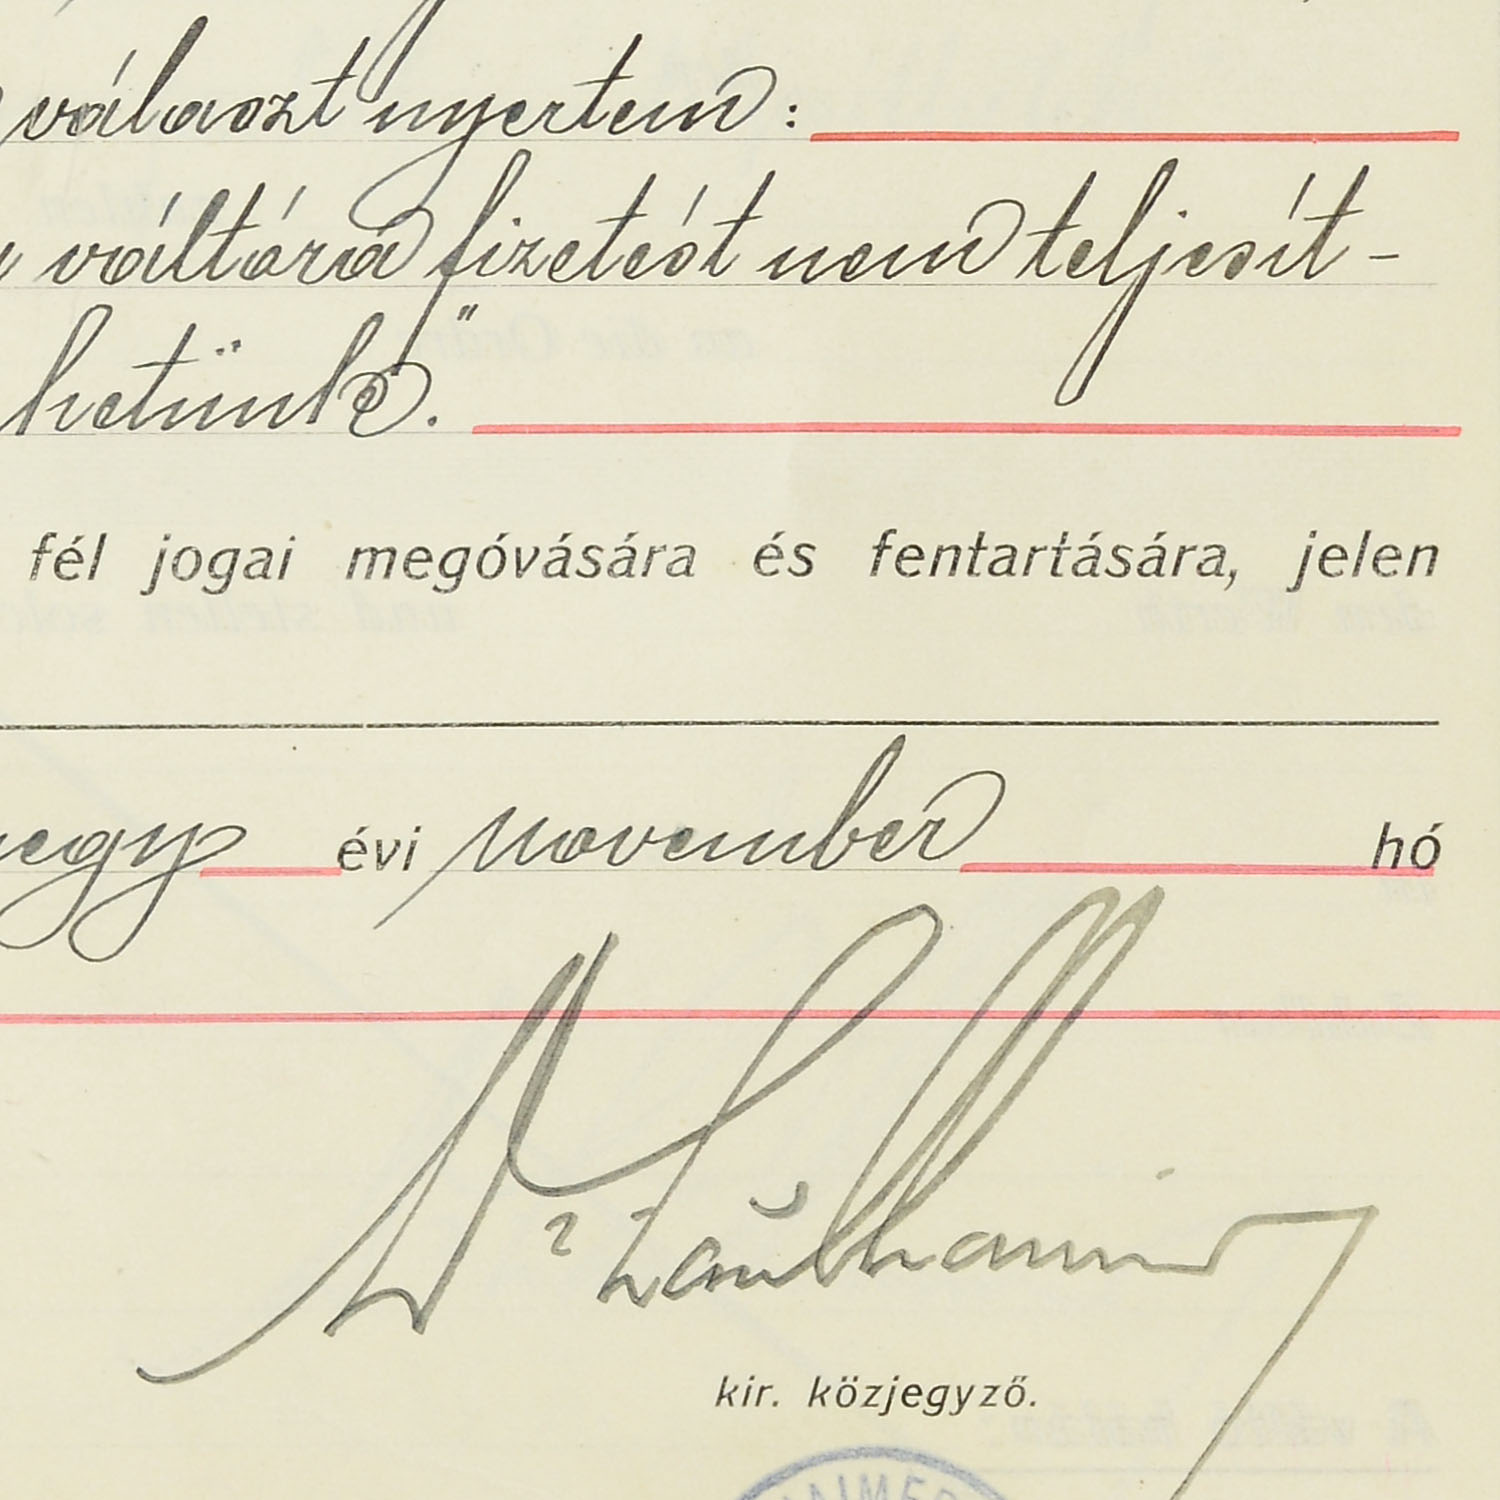 választ nyertem:
váltóra fizetést nem teljesít-
hetünk."
fél jogai megóvására és fentartására, jelen
negy évi november hó
Dr
kir. közjegyző.